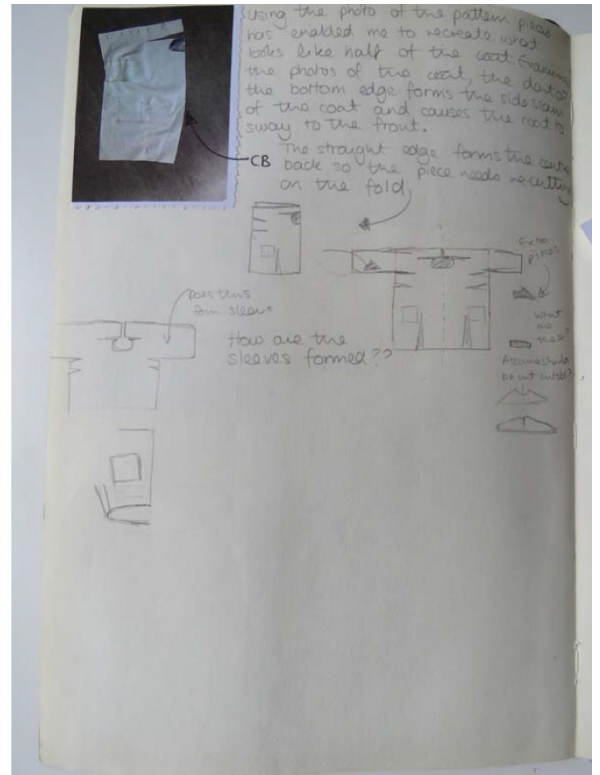 Using the photo of the pattern pieces
has enabled me to recreate what
looks like half of the coat. Examining
the photos of the coat, the dart at
the bottom edge forms the side seam
of the coat and causes the coat to
sway to the front.
CB
The straight edge forms the centre
back so the piece needs re-cutting
on the fold
Extra
pieces
Does this
form sleeve
How are the
sleeves formed??
What
are
these?